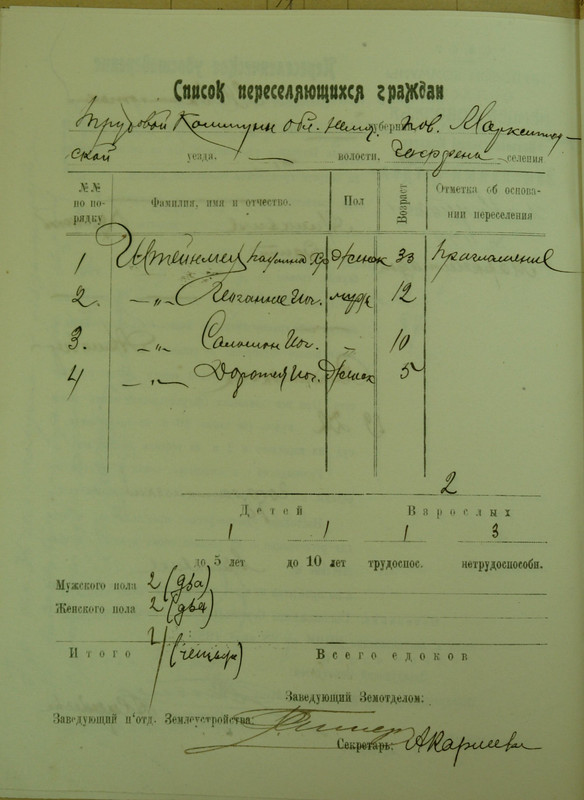 Список переселяющихся граждан
Трудовой Коммуны обл. Нем. губернии пов. Марксштадт-
ской уезда. — волости. селения
№№ по по- рядку Фамилия, имя и отчество. Пол Возраст Отметка об основа- нии переселения
1 Штейнмец Хр женск 33 приглашение
2. —„— Иоганнес Иог. муж 12
3. —„— Саломон Иог. – 10
4 —„— Доротея Иог. женск 5
2
Детей Взрослых
1 1 1 3
до 5 лет до 10 лет трудоспос. нетрудоспособн.
Мужского пола 2 (два)
Женского пола 2 (два)
Итого 4 (четыре) Всего едоков
Заведующий Земотделом:
Заведующий п'отд. Землеустройства:
Секретарь: